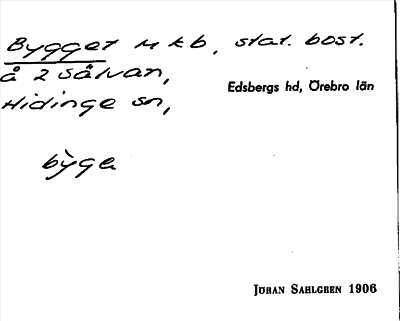 Bygget M k b, stat. bost.
å 2 Sålvan,
Edsbergs hd, Örebro län
Hidinge sn,
bỳge
JÖRAN SAHLGREN 1906